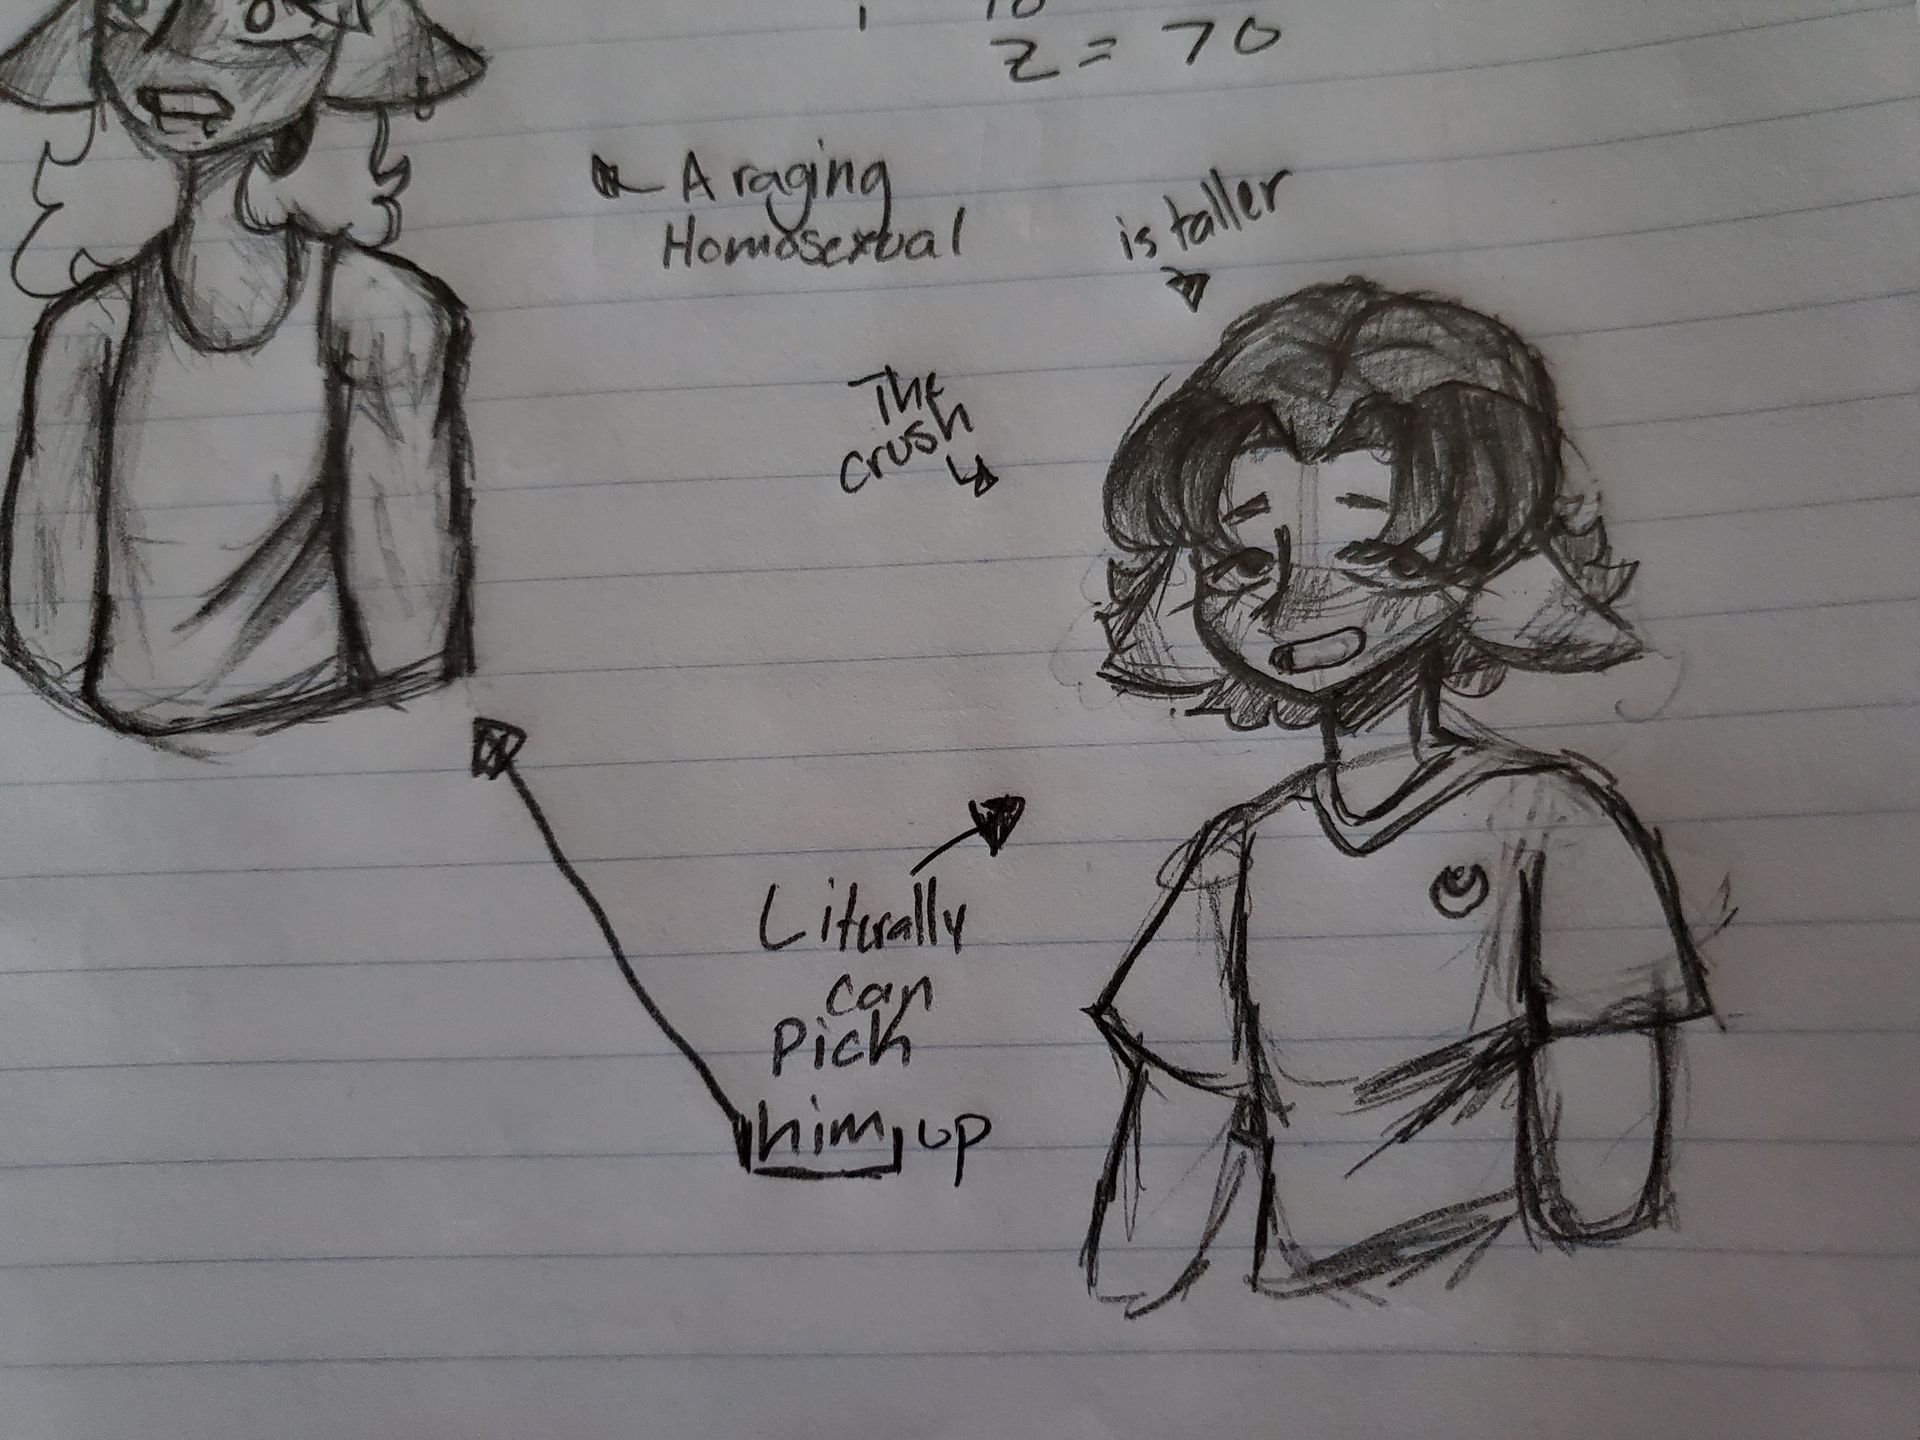 z = 70
A raging
Homosexual
is taller
The
crush
Literally
can
Pick
him up